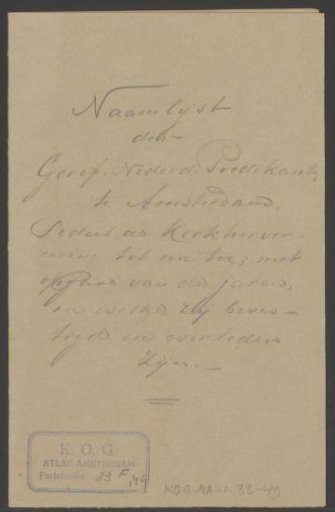 Naamlijst
der
Geref. Nederd. Predikanten
te Amsterdam,
Sedert de Kerkhervor-
ming tot nu toe; met
opgave van de jaren,
in welke zij beves-
tigd en overleden
zijn.
K. O. G.
ATLAS AMSTERDAM
Portefeuille 33 F, 49
KOG-AA-1-33-49